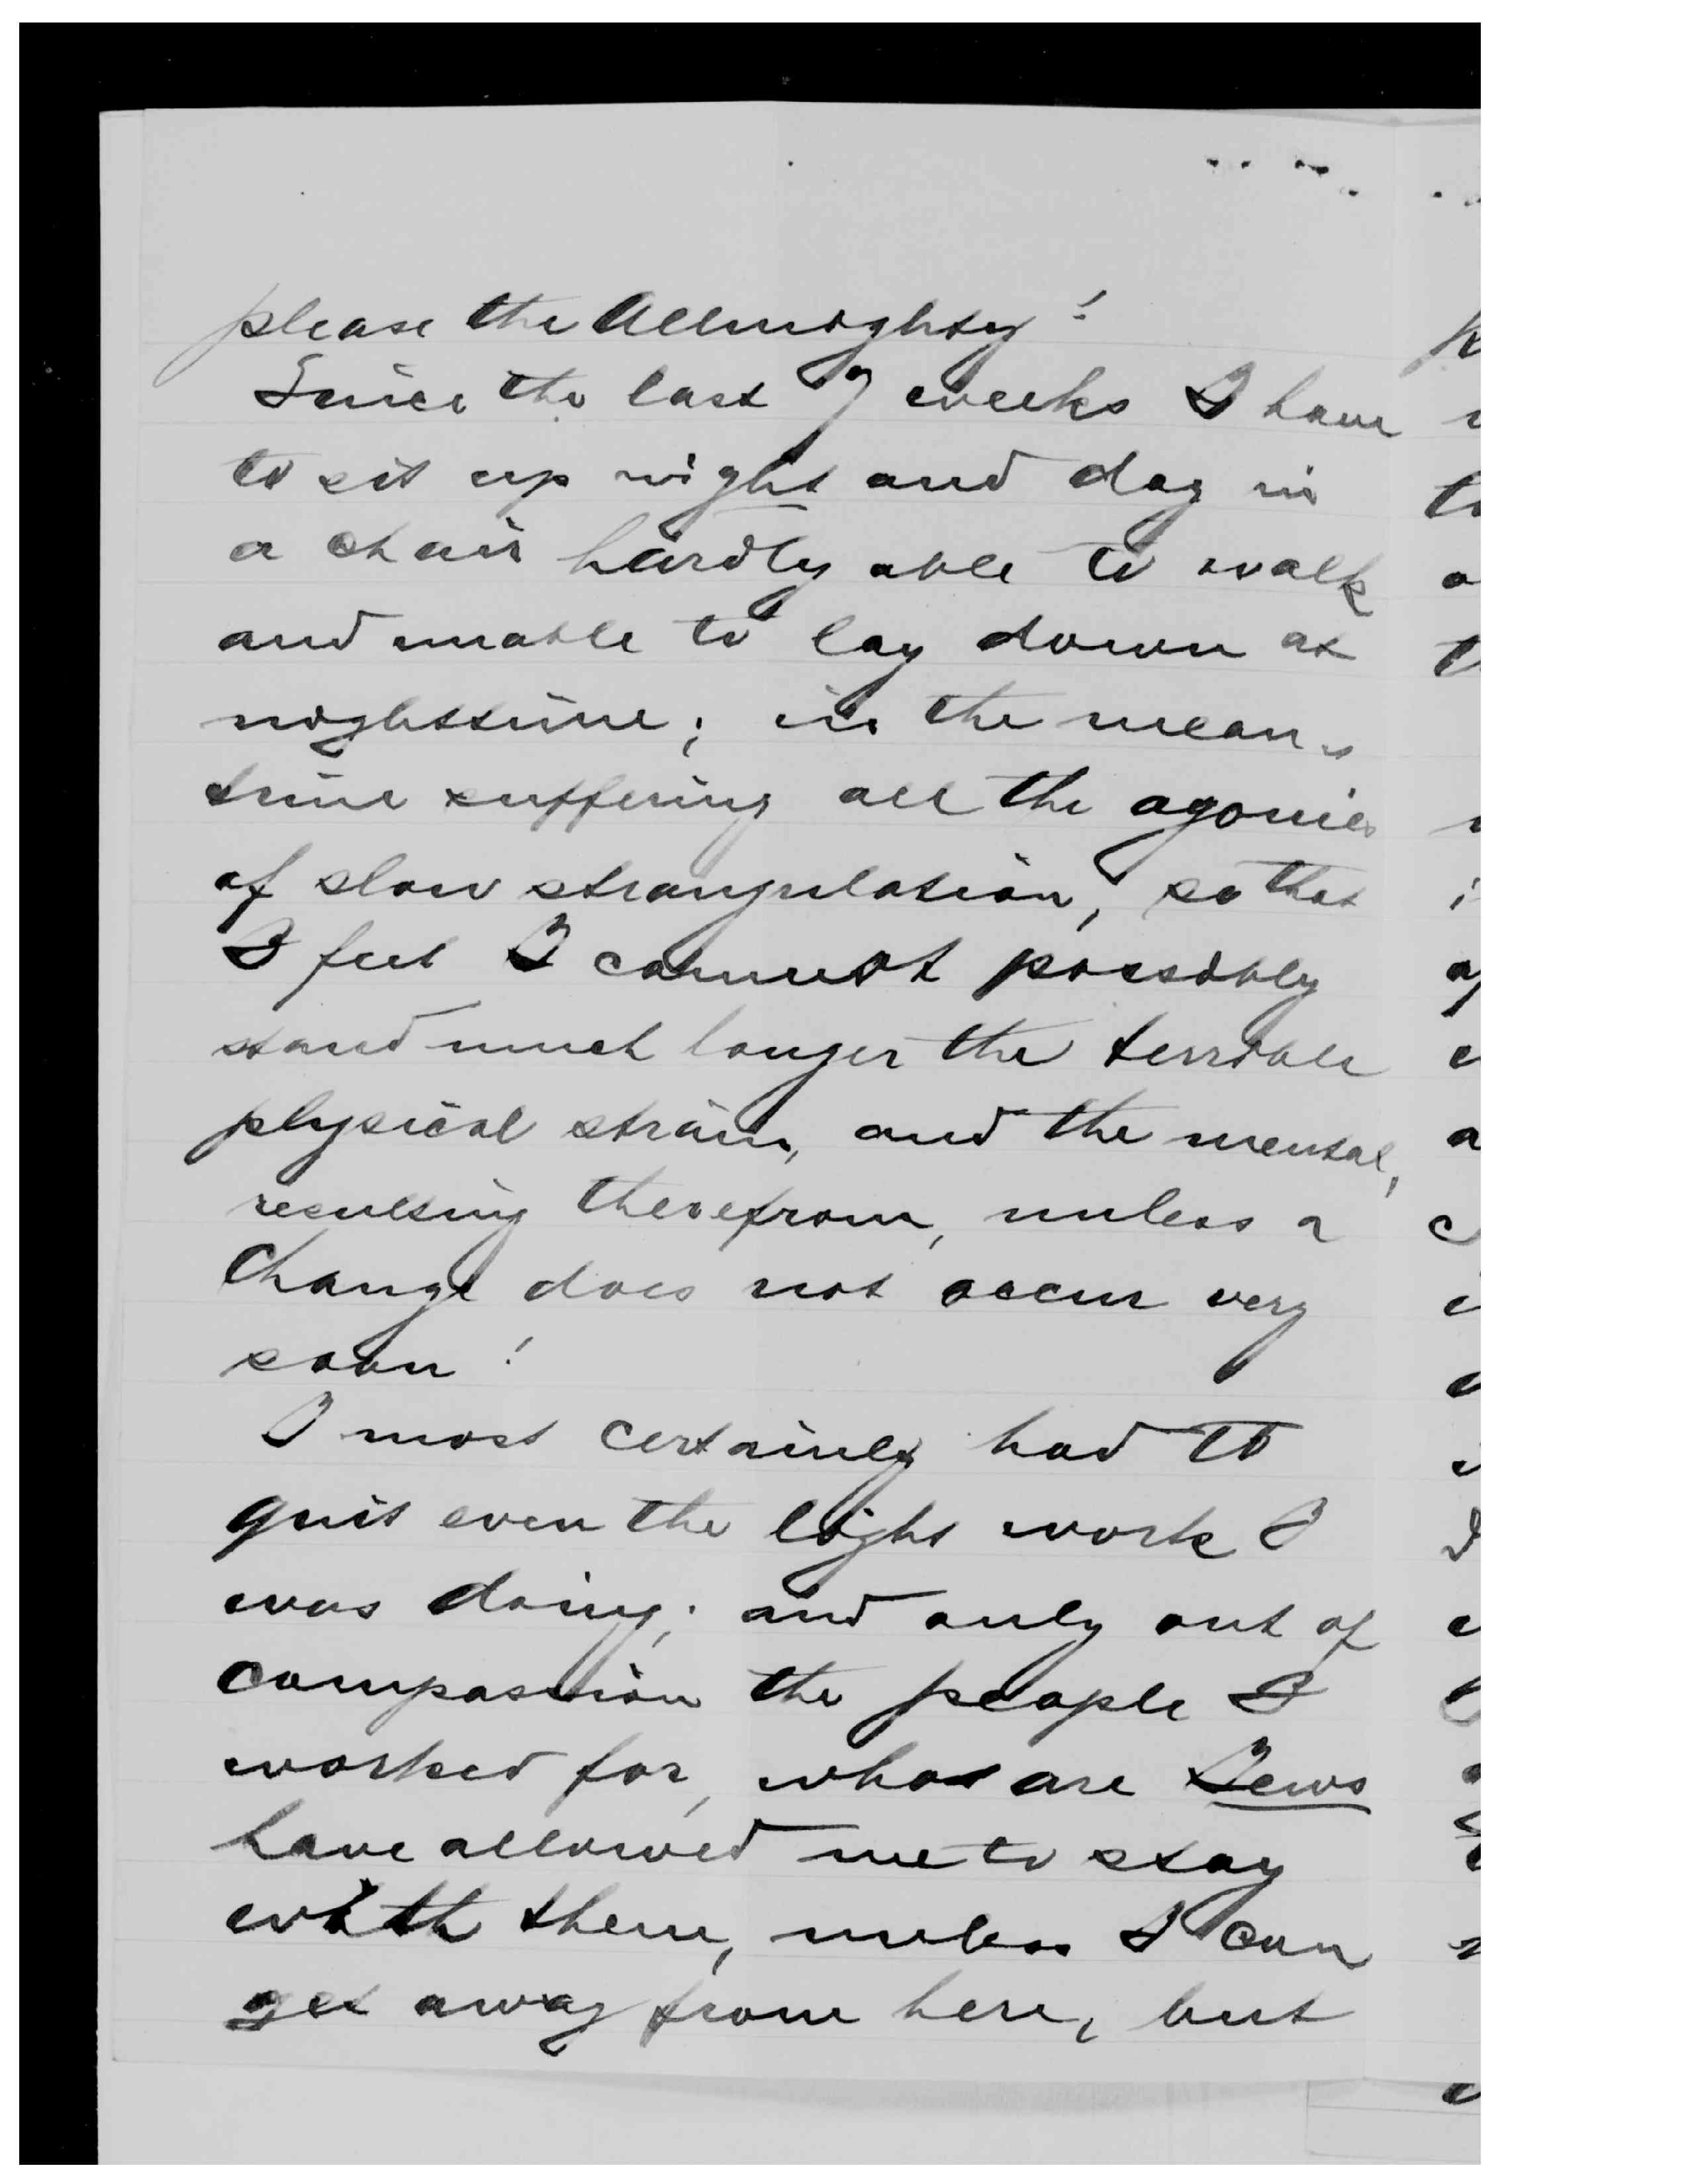 please the Allmighty!
Since the last 7 weeks I have
to sit up night and day in
a chair hardly able to walk
and unable to lay down at
nighttime; in the mean-
time suffering all the agonies
of slow strangulation, so that
I feel I cannot possibly
stand much longer the terrible
physical strain, and the mental,
resulting therefrom, unless a
change does not occur very
soon!
I most certainly had to
quit even the light work I
was doing; and only out of
compassion the people I
worked for, who are Jews
have allowed me to stay
with them, unless I can
get away from here, but